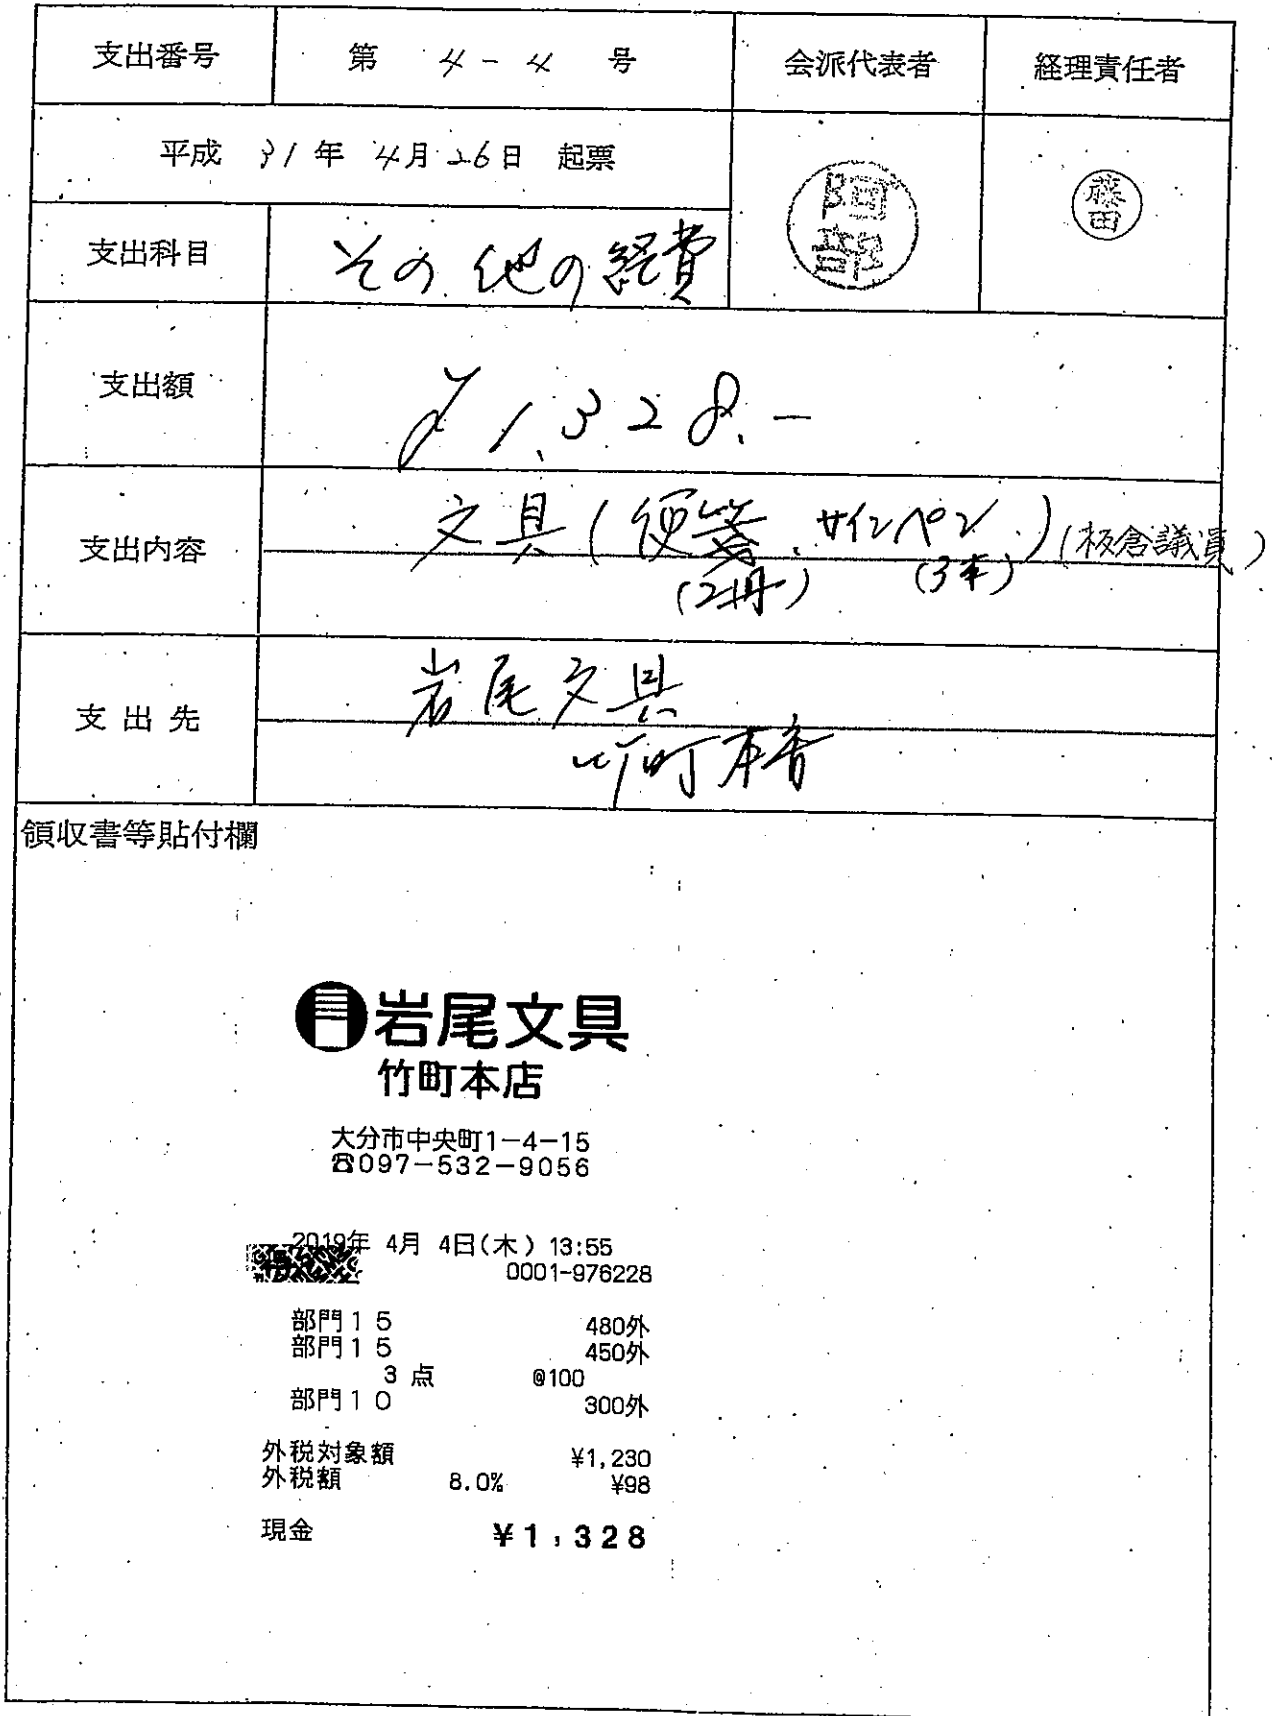 支出番号 第 4-4 号 会派代表者 経理責任者
平成 31年 4月26日 起票
阿部
藤田
支出科目 その他の経費
支出額 ¥1,328.-
支出内容 文具(便箋、サインペン)(板倉議員)
(2冊) (3本)
支出先 岩尾文具
竹町本店
領収書等貼付欄
岩尾文具
竹町本店
大分市中央町1-4-15
☎097-532-9056
2019年 4月 4日(木) 13:55
0001-976228
部門15 480外
部門15 450外
3 点 @100
部門10 300外
外税対象額 ¥1,230
外税額 8.0% ¥98
現金 ¥1,328